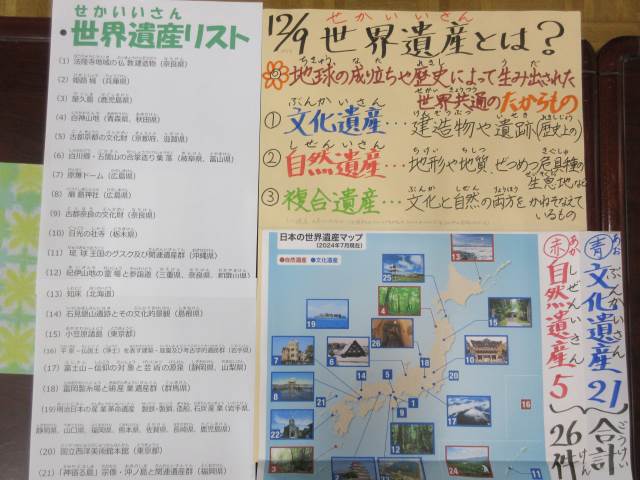 せかいいさん
・世界遺産リスト
(1) 法隆寺地域の仏教建造物（奈良県）
(2) 姫路城（兵庫県）
(3) 屋久島（鹿児島県）
(4) 白神山地（青森県、秋田県）
(5) 古都京都の文化財（京都府、滋賀県）
(6) 白川郷・五箇山の合掌造り集落（岐阜県、富山県）
(7) 原爆ドーム（広島県）
(8) 厳島神社（広島県）
(9) 古都奈良の文化財（奈良県）
(10) 日光の社寺（栃木県）
(11) 琉球王国のグスク及び関連遺産群（沖縄県）
(12) 紀伊山地の霊場と参詣道（三重県、奈良県、和歌山県）
(13) 知床（北海道）
(14) 石見銀山遺跡とその文化的景観（島根県）
(15) 小笠原諸島（東京都）
(16) 平泉－仏国土（浄土）を表す建築・庭園及び考古学的遺跡群（岩手県）
(17) 富士山－信仰の対象と芸術の源泉（静岡県、山梨県）
(18) 富岡製糸場と絹産業遺産群（群馬県）
(19) 明治日本の産業革命遺産　製鉄・製鋼、造船、石炭産業（岩手県、
静岡県、山口県、福岡県、熊本県、佐賀県、長崎県、鹿児島県）
(20) 国立西洋美術館本館（東京都）
(21) 「神宿る島」宗像・沖ノ島と関連遺産群（福岡県）
せかいいさん
12/9 世界遺産とは？
ちきゅう な た れきし う だ
地球の成り立ちや歴史によって生み出された
せかいきょうつう
世界共通のたからもの
ぶんかいさん
① 文化遺産… 建造物や遺跡(歴史上の)
しぜんいさん
② 自然遺産… 地形や地質、ぜつめつ危具種の
生息地など
③ 複合遺産… 文化と自然の両方をかねそなえて
いるもの
日本の世界遺産マップ
（2024年7月現在）
●自然遺産 ●文化遺産
13
25
4
19
16
6
10
7
14
18
8
20
2
17
5
1
21
9
22
15
12
23
3
24
11
あお ぶんかいさん
青 文化遺産 21
あか しぜんいさん
赤 自然遺産 5
ごうけい
合計
26件
けん